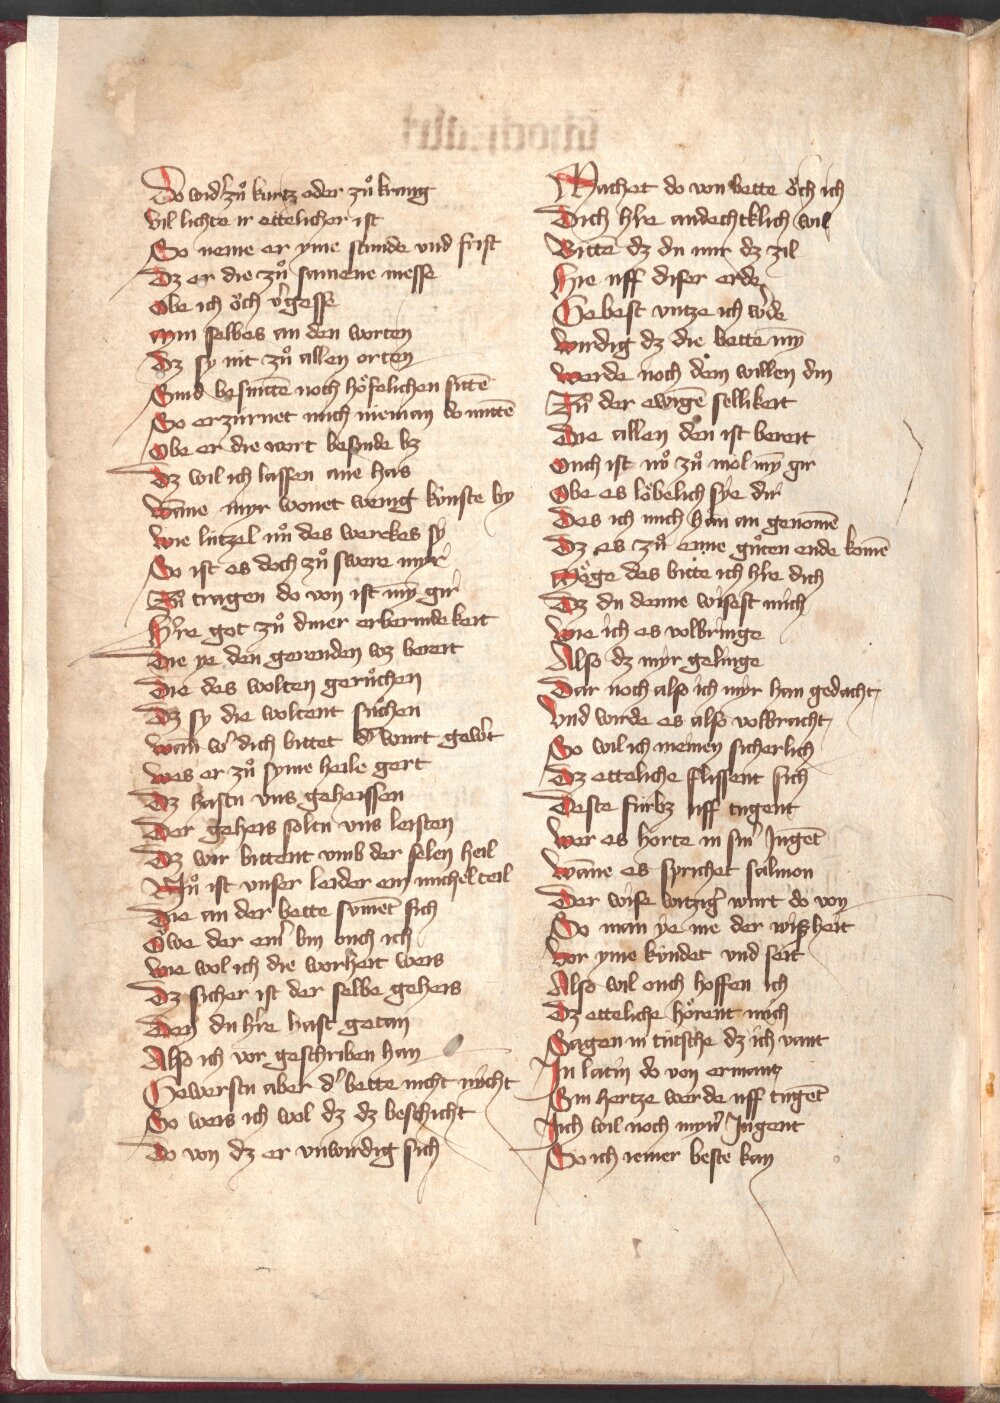 Do wid' zů kurtz oder zů krang
Vil lichte ir ettelicher ist
So neme er yme stunde vnd frist
Dz er die zů samene messe
Obe ich öch v'gesse
Myn selbes an den worten
Dz sy nit zů allen orten
Sind besnitten noch höfelichen sitte
So erzürnet mich nieman do mitte
Obe er die wort besinde bz
Dz wil ich lassen ane has
Wanne myr wonet wenig künste by
Wie lützel nů des werckes sy
So ist es doch zů swere myr
Zů tragen do von ist myn gir
H're got zů diner erbermdekeit
Die ye den gerenden wz bereit
Die des wolten gerůchen
Dz sy die woltent sůchen
Wan w' dich bittet d' wurt gew't
Wes er zů syme heile gert
Dz hastu vns geheissen
Der geheis soltu vns leisten
Dz wir bittent vmb der selen heil
Nů ist vnser leider ein michel teil
Die an der bette sument sich
Owe der ein' bin ouch ich
Wie wol ich die worheit weis
Dz sicher ist der selbe geheis
Den du h're hast getan
Also ich vor geschriben han
Gewerstu aber d' bette nicht nicht
So weis ich wol dz dz beschicht
Do von dz er vnwirdig sich
Machet do von bette öch ich
Dich h're andechtklich wil
Bitte dz du mir dz zil
Hie uff diser erde
Gebest vntze ich w'de
Wirdig dz die bette myn
Werde noch dem willen din
Zů der ewigen sellikeit
Die allen den ist bereit
Ouch ist nů zů mol myn gir
Obe es löbelich sye dir
Des ich mich han an genomen
Dz es zů eime gůten ende komen
Möge des bitte ich h're dich
Dz du denne wisest mich
Wie ich es volbringe
Also dz myr gelinge
Dar noch also ich myr han gedacht
Vnd wirde es also volbracht
So wil ich meinen sicherlich
Dz etteliche flissent sich
Deste fürbz uff tugent
Wer es horte in sin' Jugent
Wanne es sprichet salmon
Der wise witzig' wurt do von
So man ye me der wiszheit
Vor yme kündet vnd seit
Also wil ouch hoffen ich
Dz etteliche hörent mich
Sagen in tütsche dz ich vant
In latin do von ermant
Sin hertze werde uff tugent
Jch wil noch myn' Jugent
So ich iemer beste kan